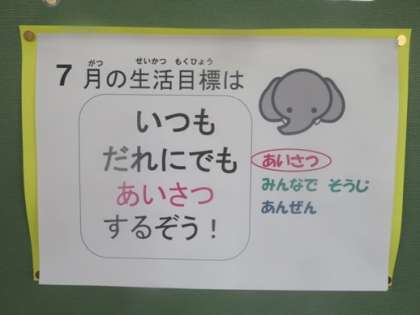 7月の生活目標は
がつ せいかつ もくひょう
いつも
だれにでも
あいさつ
するぞう！
あいさつ
みんなで そうじ
あんぜん